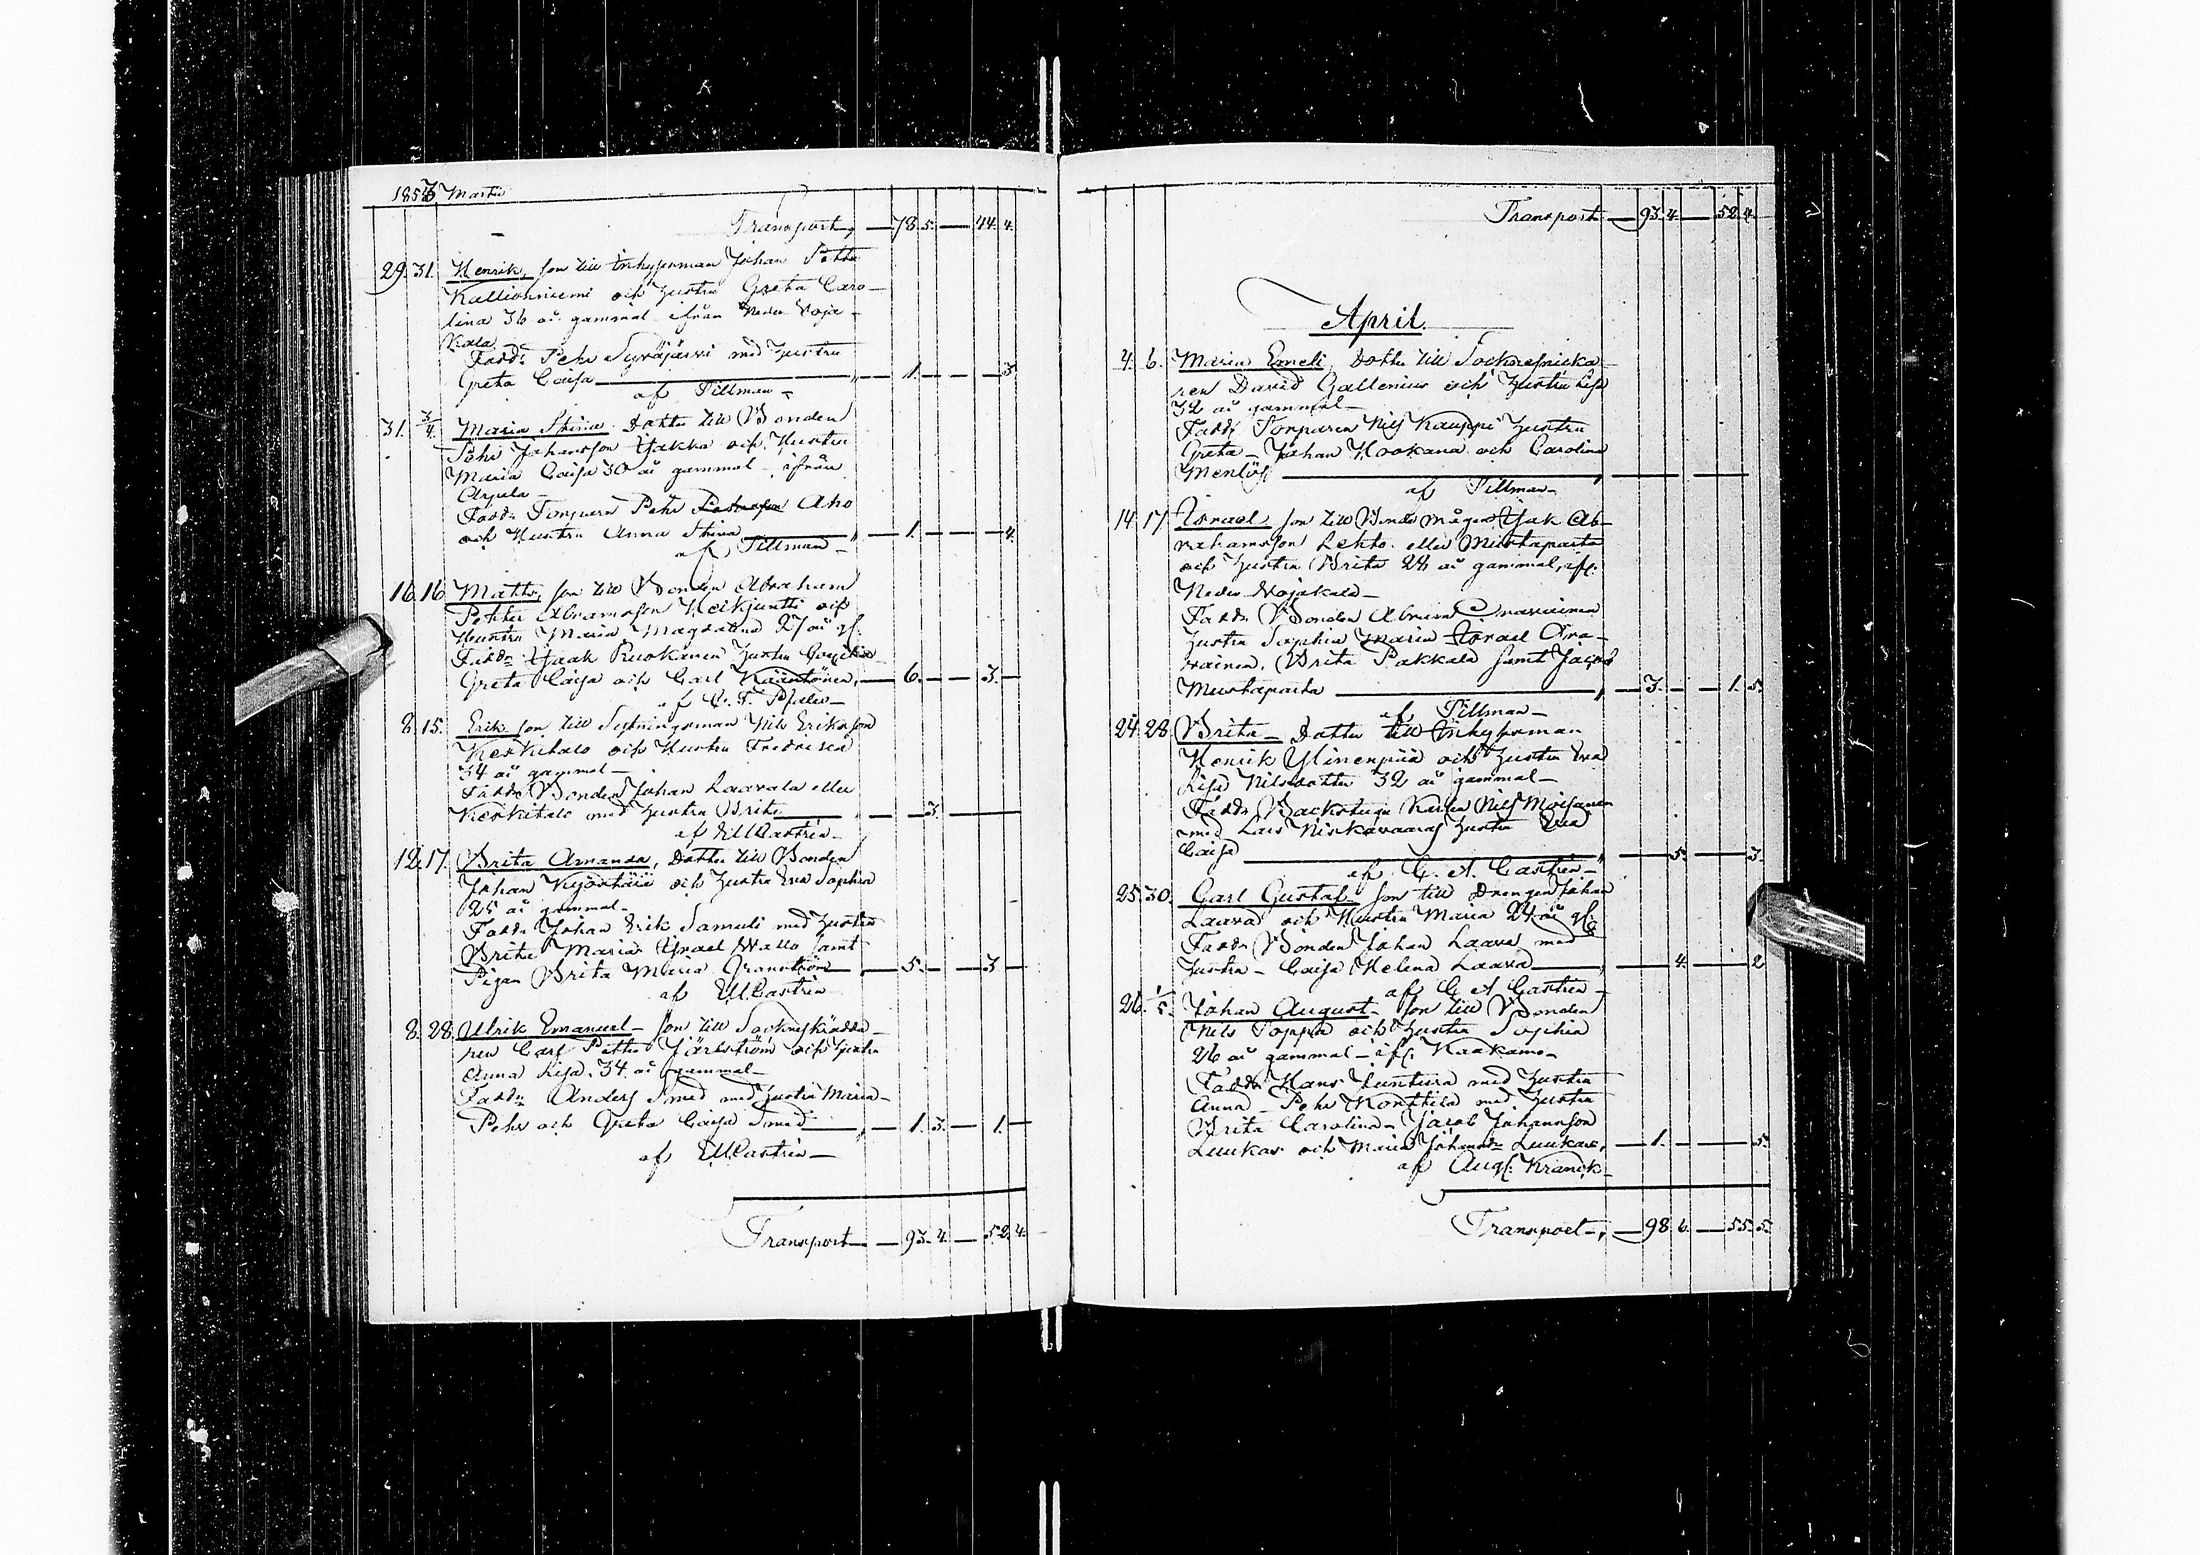 1853 Martii
Transport, — 78. 5. — 44. 4.
29. 31. Henrik, son till Inhysman Johan Petter
Kallioniemi och hustru Greta Caro-
lina 36 år gammal ifrån Neder Woja-
kala
Fadd: Pehr Syväjärvi med hustru
Greta Caisa — 1. — 3
af Tillman
31. 3/4. Maria Stina Dotter till Bonden
Pehr Johansson Jakko och Hustru
Maria Caisa 30 år gammal ifrån
Arpela
Fadd: Torparn Pehr Aho
och Hustru Anna Stina — 1. — 4.
af Tillman
16. 16. Matts, son till Bonden Abraham
Petter Abramsson Heikjuntti och
Hustru Maria Magdalena 27 år gl:
Fadd: Isaak Ruokanen hustru
Greta Caisa och Carl — 6. — 3. —
af C. F.
8. 15. Erik son till Sytningsman Nils Eriksson
Keskitalo och Hustru Fredrica
34 år gammal
Fadd: Bonden Johan Laavala eller
Keskitalo med hustru Brita — 3. —
af EMCastrén
12. 17. Brita Amanda, Dotter till Bonden
Johan och hustru Eva Sophia
25 år gammal
Fadd: Johan Erik Samuli med hustru
Brita Maria Israel Wallo samt
Pigan Brita Maria Granström — 5. — 3 —
af EMCastrén
8. 28. Ulrik Emanuel son till Sockneskrädda-
ren Carl Petter och hustru
Anna Lisa 34 år gammal
Fadd: Anders Smed med hustru Maria
Pehr och Greta Caisa Smed — 1. 3. — 1. —
af EMCastrén
Transport — 93. 4. — 52. 4.
Transport — 93. 4. — 52. 4.
April.
4. 6. Maria Emeli, Dotter till Socknesnicka-
ren David Gallenius och hustru Lisa
32 år gammal
Fadd: Torparen Nils Kauppi hustru
Greta Johan Hookana och Carolina
Menlös
af Tillman
14. 17. Israel son till Bonde mågen Isak Ab-
rahamsson Lehto eller Mustaparta
och hustru Brita 28 år gammal, ifr:
Neder Wojakala
Fadd: Bonden Abram
hustru Sophia Maria Israel Ara-
vainen, Brita Pakkala samt Jacob
Mustaparta — 3. — 1. 5.
af Tillman
24. 28. Brita Dotter till Inhysman
Henrik Ylinenpää och hustru Eva
Lisa Nilsdotter 32 år gammal
Fadd: Backstugu Karlen Nils Moisanen
med Lars Niskavaaras hustru Eva
Caisa — 5. — 3.
af C. A. Castrén
25. 30. Carl Gustaf son till Drengen Johan
Laava och Hustru Maria 24 år gl:
Fadd: Bonden Johan Laava med
hustru Caisa Helena Laava — 4. — 2
af C A Castrén
26. 1/5. Johan August son till Bonden
Nils Poppa och hustru Sophia
26 år gammal ifr: Kaakamo
Fadd: Hans Juntura med hustru
Anna Pehr Konttila med hustru
Brita Carolina Jacob Johansson
Luukas och Maria Johansdr Luukas, — 1. — 5.
af Aug: Kranck
Transport, — 98. 6. — 55. 5.